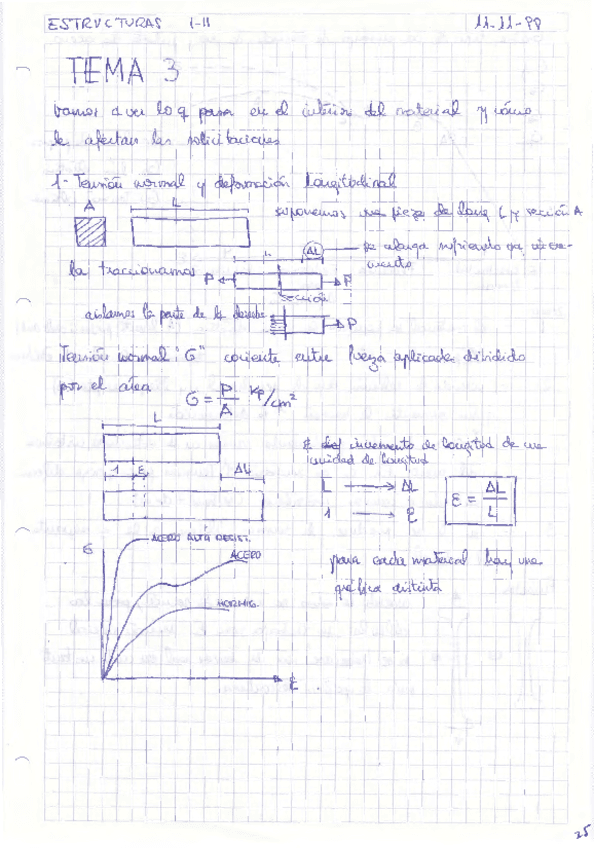 ESTRUCTURAS I-II 11-11-98
TEMA 3
Vamos a ver lo q pasa en el interior del material y cómo
le afectan las solicitaciones
1- Tensión normal y deformación Longitudinal
A L suponemos una pieza de long L y sección A
L ΔL se alarga sufriendo un
la traccionamos P P
sección
aislamos la parte de la derecha P
Tensión normal "σ" cociente entre fuerza aplicada dividido
por el área σ = P/A Kp/cm²
L
ε incremento de longitud de una
unidad de longitud
1 ε ΔL
L → ΔL
1 → ε
ε = ΔL/L
σ ACERO ALTA RESIST.
ACERO
HORMIG.
ε
para cada material hay una
gráfica distinta
25